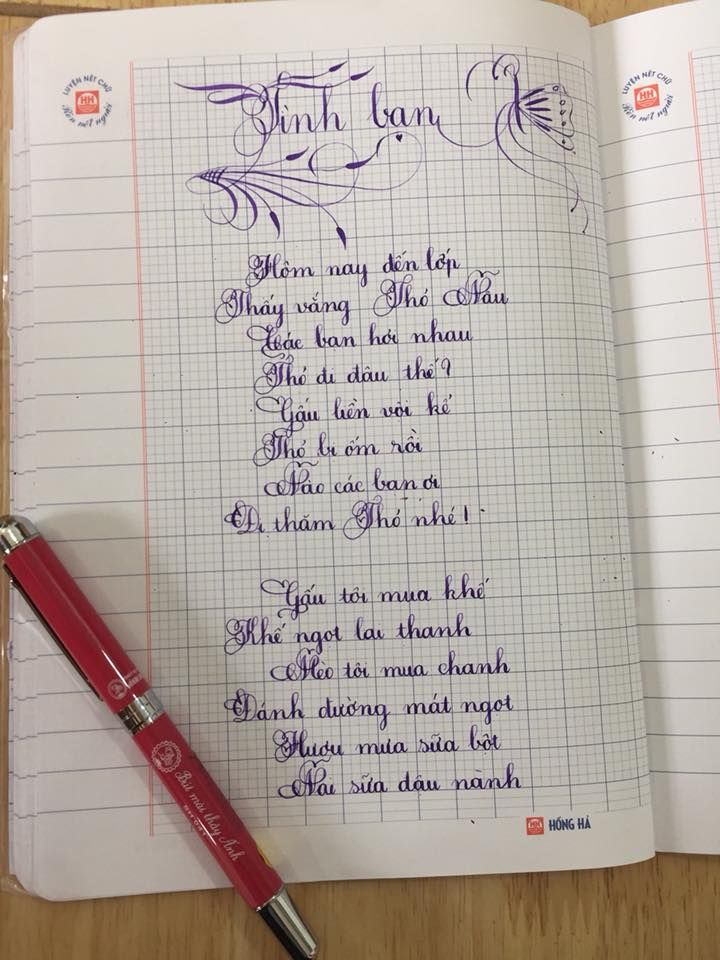 LUYỆN NÉT CHỮ
HH
Rèn nết người
LUYỆN NÉT CHỮ
HH
Rèn nết người
Tình bạn
Hôm nay đến lớp
Thấy vắng Thỏ Nâu
Các bạn hỏi nhau
Thỏ đi đâu thế?
Gấu liền vội kể
Thỏ bị ốm rồi
Nào các bạn ơi
Đi thăm Thỏ nhé!
Gấu tôi mua khế
Khế ngọt lại thanh
Mèo tôi mua chanh
Đánh đường mát ngọt
Hươu mua sữa bột
Nai sữa đậu nành
HỒNG HÀ
Bút mài thầy Ánh